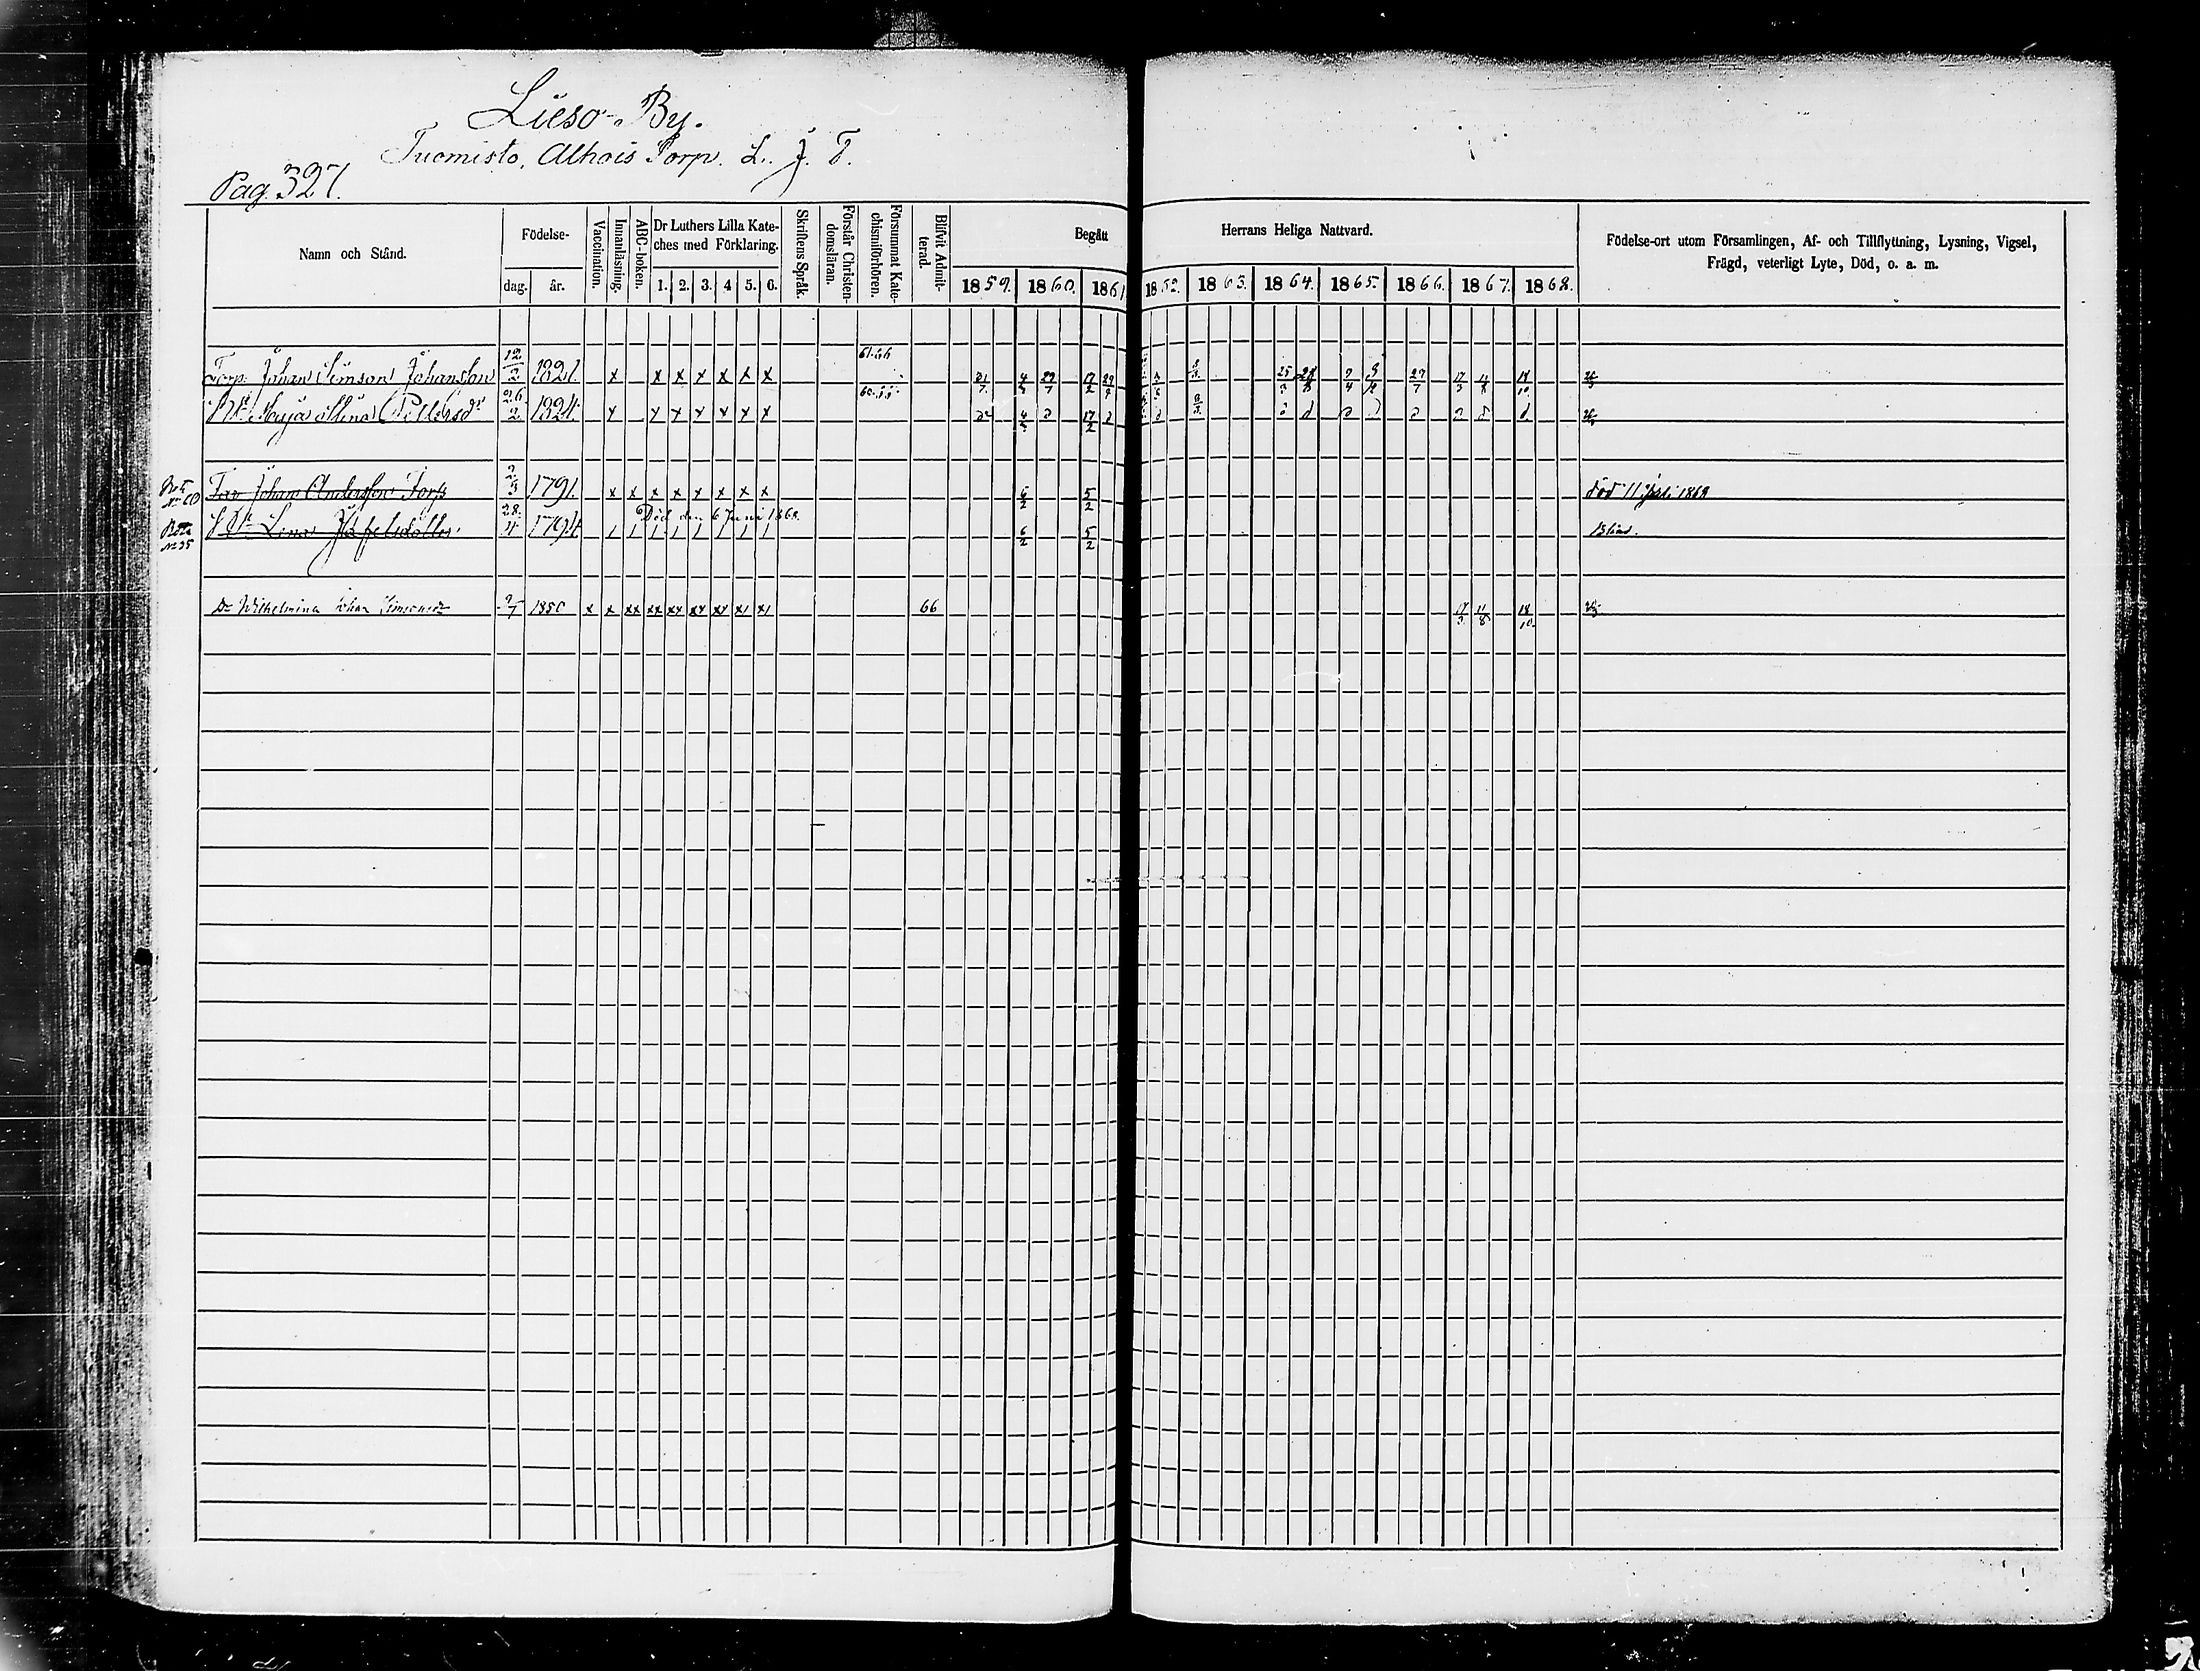 Lieso By.
Tuomisto, Alhois Torp. L. J. T.
Pag. 327.
Namn och Stånd.
Födelse-
dag.
år.
Vaccination.
Innanläsning.
ABC-boken.
Dr Luthers Lilla Kate-
ches med Förklaring.
1. 2. 3. 4 5. 6.
Skriftens Språk.
Förstår Christen-
domsläran.
Försummat Kate-
chismiförhören.
Blifvit Admit-
terad.
Begått
Herrans Heliga Nattvard.
1859. 1860. 1861 1862. 1863. 1864. 1865. 1866. 1867. 1868.
Födelse-ort utom Församlingen, Af- och Tillflyttning, Lysning, Vigsel,
Frägd, veterligt Lyte, Död, o. a. m.
Torp. Johan Simson Johansson 12/2 1821. x x x x x x x 61.66 31/7 29/7 17/2 25/3 27/7 17/3 11/8 18/10
Maja Stina 26/2 1824. x x x x x x x 4/3 17/2
Johan Andersson Torp 2/3 1791. x x x x x x x x 6/2 5/2 död 11 Juli 1869
Död den 6 Juni 1868.
Lena 28/4 1794 1 1 1 1 1 1 1 1 6/2 5/2 Blind.
No 35
Dr Wilhelmina Johan Simonsdr 1850 x x xx xx xx xx xx x1 x1 66 17/3 11/8 18/10